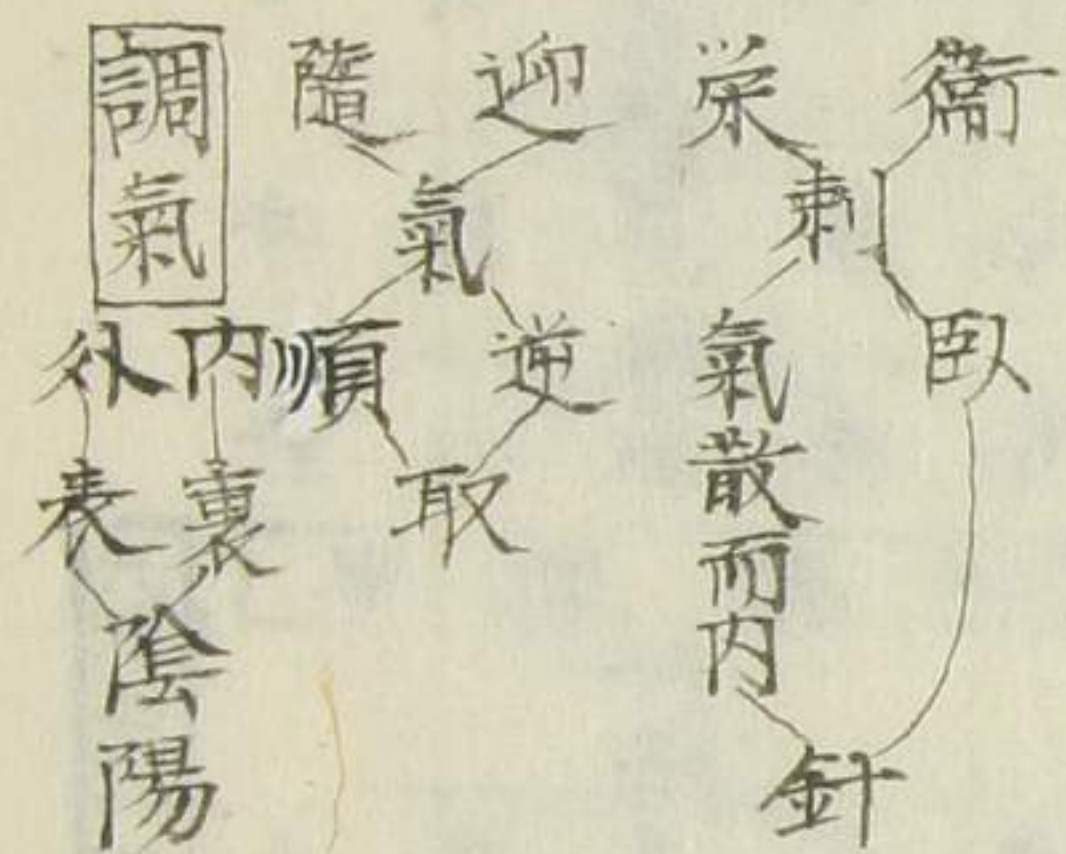 衞
栄
刺
臥
氣散而内
針
迎
隨
氣
逆
順
取
調氣
内
外
裏
表
陰陽